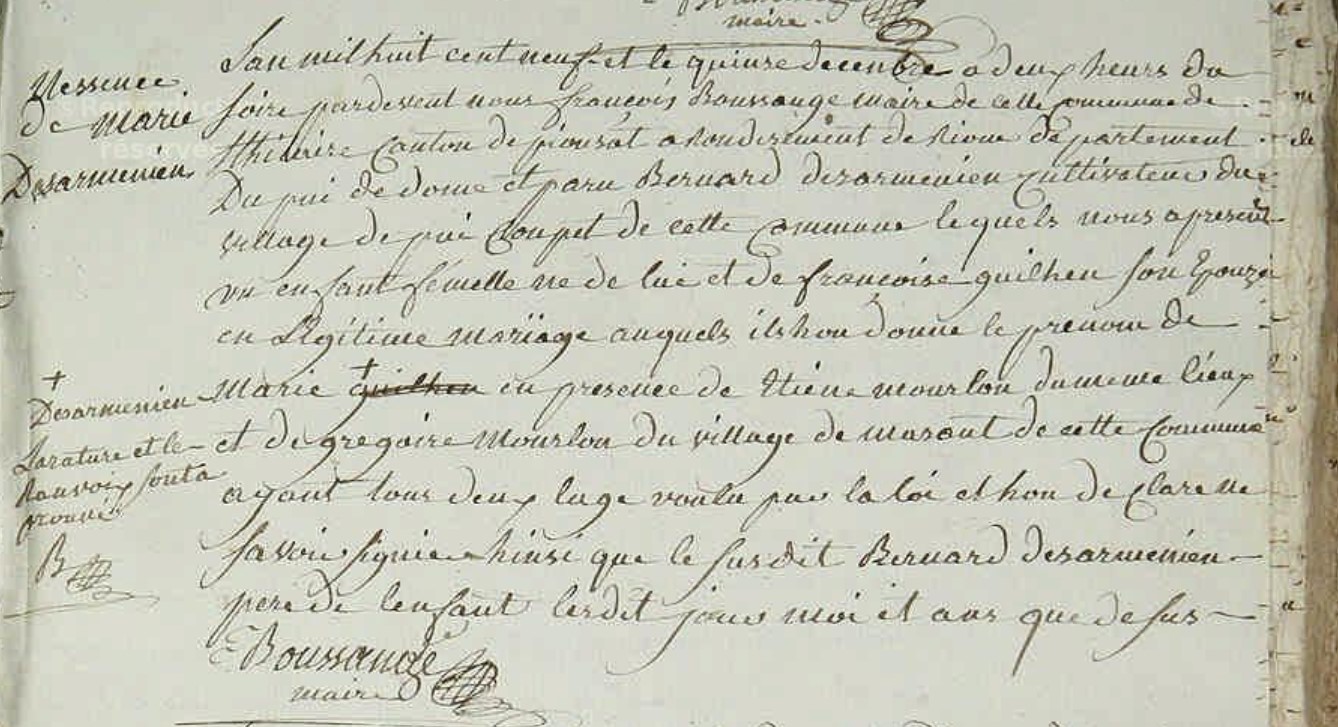 maire
Nessence
de marie
Desarmenien
Lan mil huit cent neuf et le quinse decenbre a deux heurs du
soire pardevent nous françois Boussange maire de cette commune de
canton de pionsat a rondisement de riom departement
Du pui de dome et paru Bernard desarmenien cultivateur du
village de pui Coupet de cette commune lequels nous a presenté
un enfant femelle ne de lui et de francoise guilhen son Epouze
en Legitime mariage auquels ils hon donne le prenom de
Marie guilhen en presence de Etiene mourlon du meme lieux
et de gregoire mourlon du village de masout de cette Commune
ayant tous deux lage voulu par la loi et hon de clare ne
savoir signier hinsi que le sus dit Bernard desarmenien
pere de lenfant lesdit jour moi et ans que de sus
Desarmenien
Larature et le
Ranvoix sont a
prouvé
B
Boussange
maire